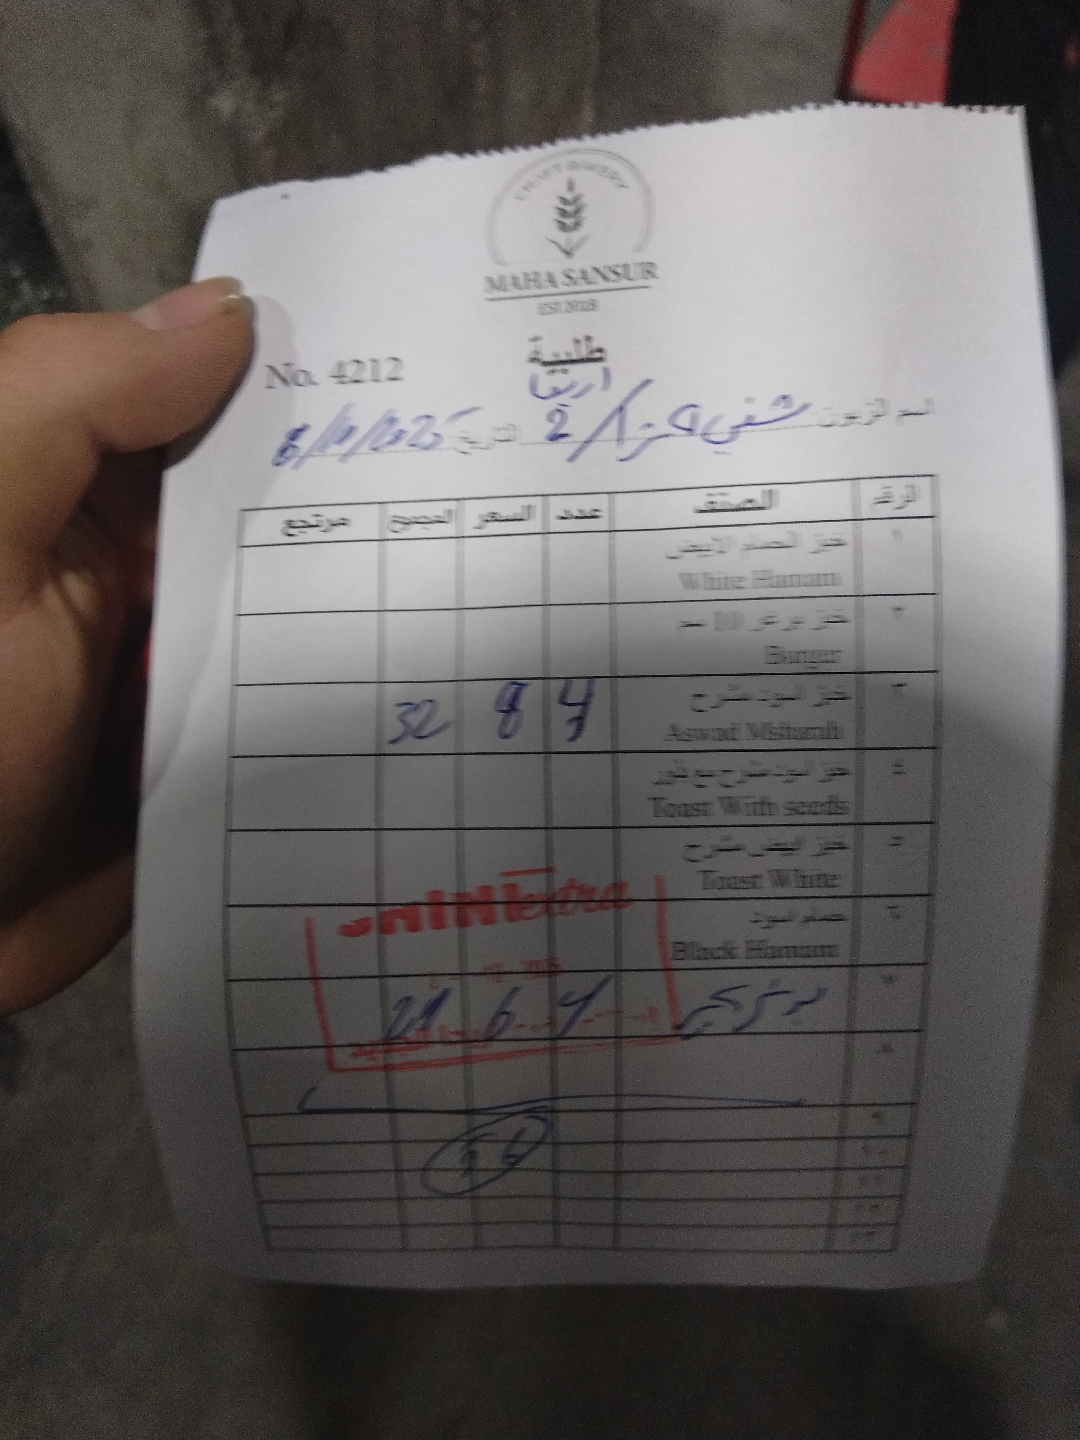 CRAFT BAKERY
MAHA SANSUR
EST 2018
طلبية
No. 4212
اربعا
اسم الزبون شني اكسترا / 2 التاريخ 8/10/2025
الرقم الصنف عدد السعر المجموع مرتجع
١ خبز الحمام الابيض
White Hamam
٢ خبز برغر 10 سم
Burger
٣ خبز اسود مشرح 4 8 32
Aswad Msharah
٤ خبز اسود مشرح مع بذور
Toast With seeds
٥ خبز ابيض مشرح
Toast White
٦ حمام اسود
Black Hamam
MINI extra
٧ 4 6 24
٨
٩
١٠
56
١١
١٢
١٣